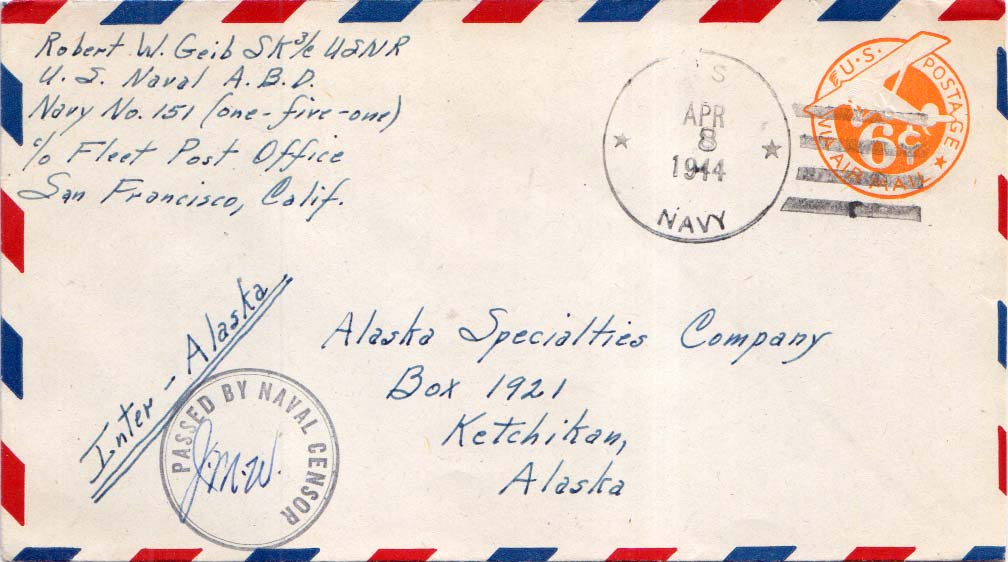 Robert W. Geib SK3/c USNR
U. S. Naval A.B.D.
Navy No. 151 (one-five-one)
c/o Fleet Post Office
San Francisco, Calif.
S
APR
8
1944
NAVY
U.S. POSTAGE
VIA AIR MAIL
6¢
Inter-Alaska
Alaska Specialties Company
Box 1921
Ketchikan,
Alaska
PASSED BY NAVAL CENSOR
J.M.W.